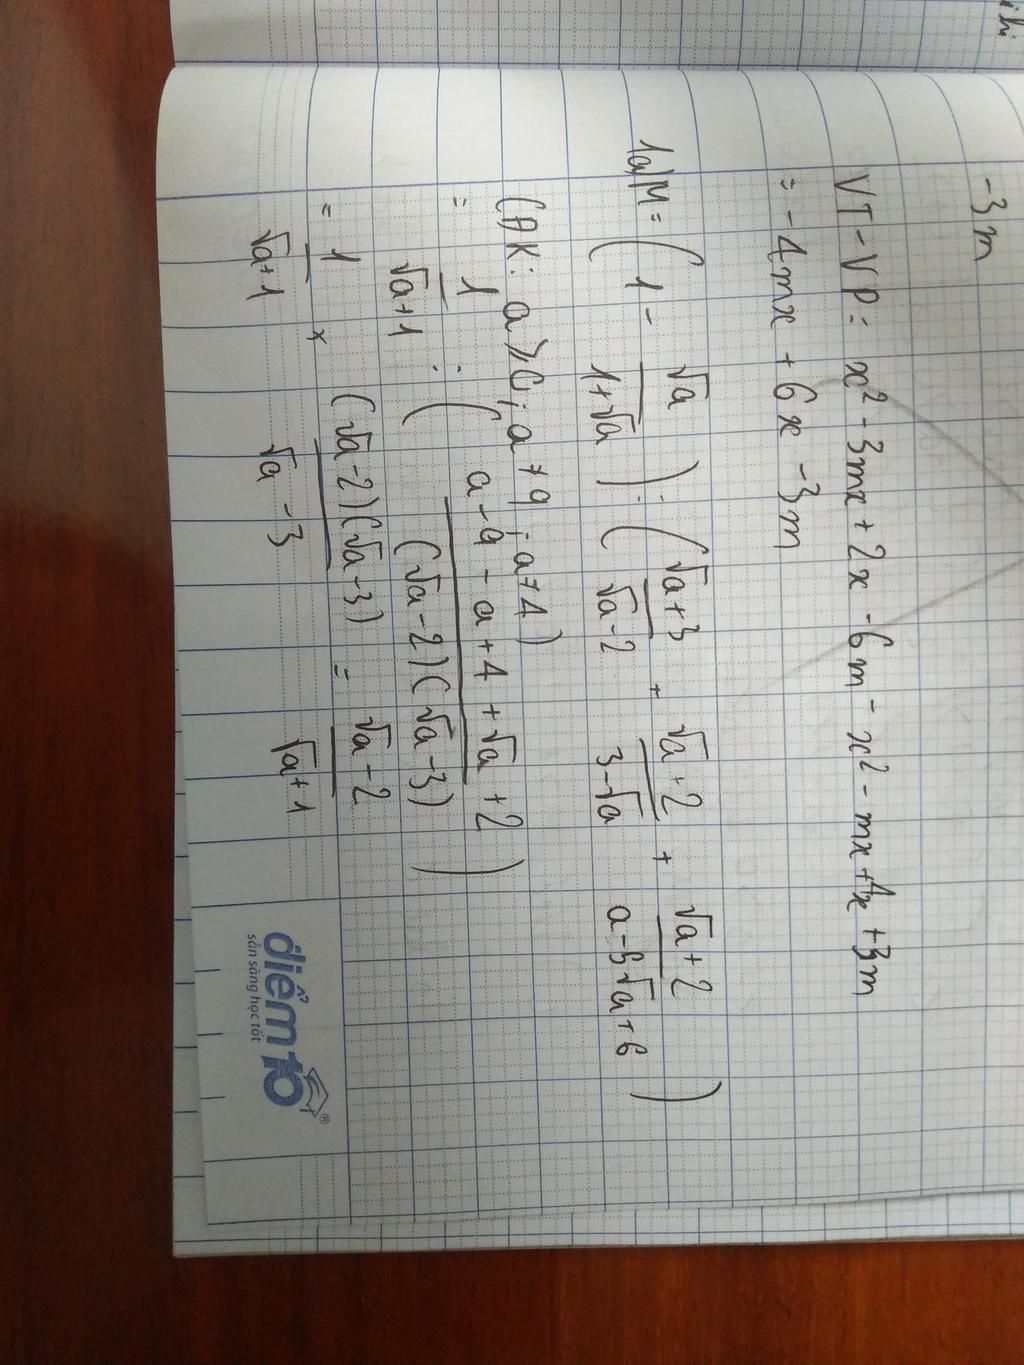 -3m
VT-VP: x² - 3mx + 2x - 6m - x² - mx + 4x + 3m
= -4mx + 6x - 3m
1a) M = (1 - √a/(1+√a)) : ((√a+3)/(√a-2) + (√a+2)/(3-√a) + (√a+2)/(a-5√a+6))
(ĐK: a ≥ 0; a ≠ 9; a ≠ 4)
= 1/(√a+1) : ((a-9 - a+4 + √a+2)/((√a-2)(√a-3)))
= 1/(√a+1) × ((√a-2)(√a-3))/(√a-3) = (√a-2)/(√a+1)
điểm10®
sẵn sàng học tốt